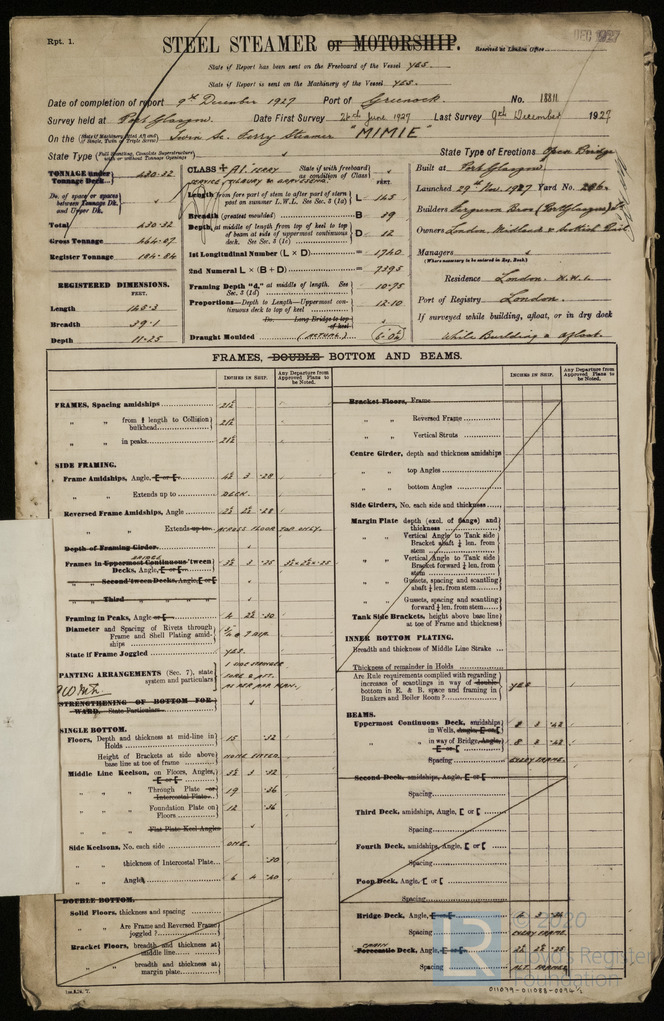 Rpt. 1.
STEEL STEAMER or MOTORSHIP.
Received at London Office
DEC 1927
State if Report has been sent on the Freeboard of the Vessel YES.
State if Report is sent on the Machinery of the Vessel YES.
Date of completion of report 9th December 1927 Port of Greenock. No. 18811
Survey held at Port Glasgow Date First Survey 26th June 1927 Last Survey 9th December 1927
On the (State if Machinery fitted Aft and if Single, Twin or Triple Screw) Twin Sc. Ferry Steamer "MIMIE"
State Type (Full Scantling, Complete Superstructure with or without Tonnage Openings)
State Type of Erections Open Bridge
TONNAGE under Tonnage Deck 430.32
Do. of space or spaces between Tonnage Dk. and Upper Dk.
Total 430.32
Gross Tonnage 464.07
Register Tonnage 184.84
REGISTERED DIMENSIONS.
FEET.
Length 145.3
Breadth 39.1
Depth 11.25
CLASS + A1 FERRY State if with freeboard as condition of Class
SERVICE TILBURY TO GRAVESEND
Length from fore part of stem to after part of stern post on summer L.W.L. See Sec. 3 (1a) L 145
Breadth (greatest moulded) B 39
Depth, at middle of length from top of keel to top of beam at side of uppermost continuous deck. See Sec. 3 (1c) D 12
1st Longitudinal Number (L × D) = 1740
2nd Numeral L × (B + D) = 7395
Framing Depth "d," at middle of length. See Sec. 3 (1d) 10.75
Proportions—Depth to Length—Uppermost continuous deck to top of keel 12.10
Do. Long Bridge to top of keel
Draught Moulded (ACTUAL)
Built at Port Glasgow
Launched 29th Nov. 1927 Yard No. 286.
Builders Ferguson Bros (Port Glasgow) Ld
Owners London, Midland & Scottish Rail
Managers
(Where necessary to be entered in Reg. Book)
Residence London. N.W.1.
Port of Registry London.
If surveyed while building, afloat, or in dry dock
While Building & afloat.
FRAMES, DOUBLE BOTTOM AND BEAMS.
INCHES IN SHIP.
Any Departure from Approved Plans to be Noted.
FRAMES, Spacing amidships 21½
" " from ⅕ length to Collision bulkhead 21½
" " in peaks 21½
SIDE FRAMING.
Frame Amidships, Angle, [ or [ 4½ 3 .28
" " Extends up to DECK.
Reversed Frame Amidships, Angle 2½ 2½ .28
" " Extends up to ACROSS FLOOR TOP ONLY.
Depth of Framing Girder
Frames in Uppermost Continuous 'tween Decks, Angle, [ or [
BRIDGE
" Second 'tween Decks, Angle, [ or [
" Third " " " "
Framing in Peaks, Angle or [ 4 2½ .30
Diameter and Spacing of Rivets through Frame and Shell Plating amidships
State if Frame Joggled YES.
PANTING ARRANGEMENTS (Sec. 7), state system and particulars
FORE & AFT.
AS PER APP. PLAN.
STRENGTHENING OF BOTTOM FORWARD. State Particulars
SINGLE BOTTOM.
Floors, Depth and thickness at mid-line in Holds 15 .32
" Height of Brackets at side above base line at toe of frame NONE FITTED
Middle Line Keelson, on Floors, Angles, [ or [ 3½ 3 .32
" " Through Plate or Intercostal Plate 19 .36
" " Foundation Plate on Floors 12 .36
" " Flat Plate Keel Angles
Side Keelsons, No. each side ONE.
" " thickness of Intercostal Plate .30
" " Angles 6 4 .40
DOUBLE BOTTOM.
Solid Floors, thickness and spacing
" " Are Frame and Reversed Frame joggled?
Bracket Floors, breadth and thickness at middle line
" " breadth and thickness at margin plate
Bracket Floors, Frame
" " Reversed Frame
" " Vertical Struts
Centre Girder, depth and thickness amidships
" " top Angles
" " bottom Angles
Side Girders, No. each side and thickness
Margin Plate depth (excl. of flange) and thickness
" " Vertical Angle to Tank side Bracket abaft ¼ len. from stem
" " Vertical Angle to Tank side Bracket forward ¼ len. from stem
" " Gussets, spacing and scantling abaft ¼ len. from stem
" " Gussets, spacing and scantling forward ¼ len. from stem
Tank Side Brackets, height above base line at toe of Frame and thickness
INNER BOTTOM PLATING.
Breadth and thickness of Middle Line Strake
Thickness of remainder in Holds
Are Rule requirements complied with regarding increases of scantlings in way of double bottom in E. & B. space and framing in Bunkers and Boiler Room? YES
BEAMS.
Uppermost Continuous Deck, amidships in Wells, Angle, [ or [ 8 3 .42
" " in way of Bridge, Angle, [ or [ 8 3 .42
Spacing EVERY FRAME.
Second Deck, amidships, Angle, [ or [
Spacing
Third Deck, amidships, Angle, [ or [
Spacing
Fourth Deck, amidships, Angle, [ or [
Spacing
Poop Deck, Angle, [ or [
Spacing
Bridge Deck, Angle, [ or [
Spacing EVERY FRAME.
CABIN
Forecastle Deck, Angle, [ or [ 2½ 2½ .25
Spacing ALT FRAMES
© 2020
Lloyd's Register
Foundation
011079-011088-0096½